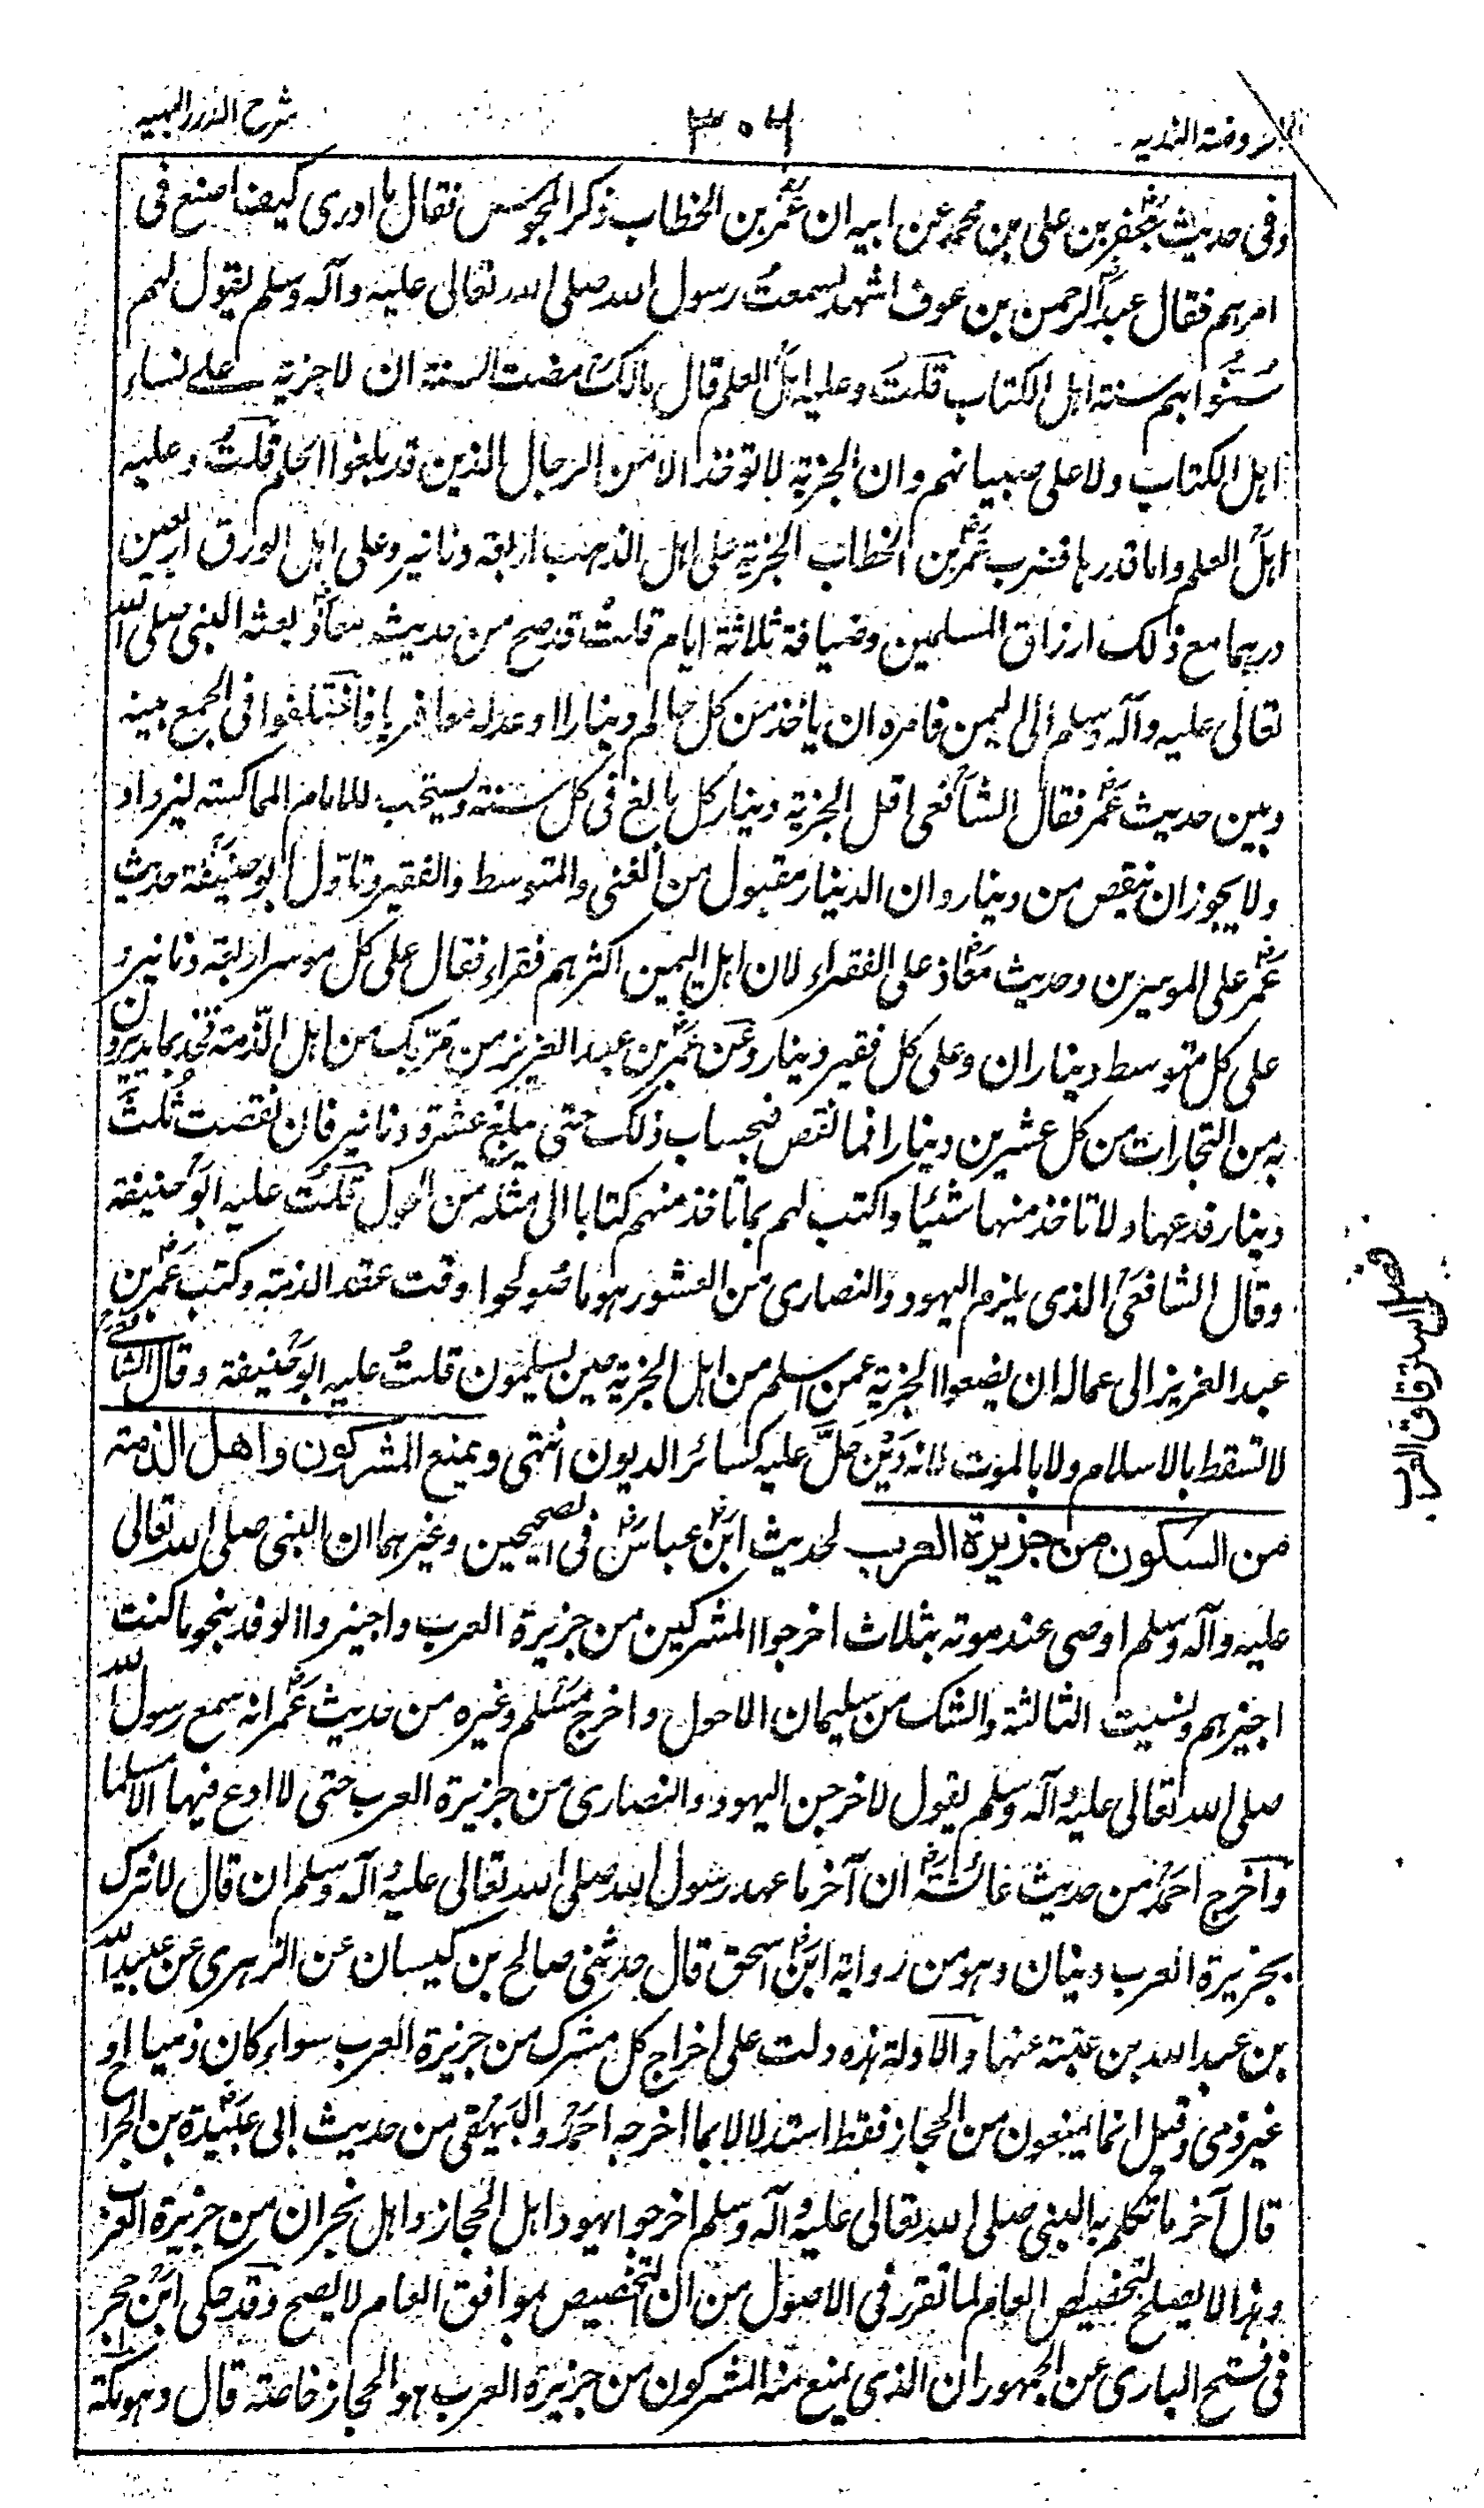 الروضة الندية
٣٠٦
شرح الدرر البهية
وفى حديث جعفر بن على بن محمد عن ابيه ان عمر بن الخطاب ذكر المجوس فقال ما ادرى كيف اصنع فى
امرهم فقال عبد الرحمن بن عوف اشهد لسمعت رسول الله صلى الله تعالى عليه وآله وسلم يقول لهم
سُنُّوا بهم سنة اهل الكتاب قلت وعليه اهل العلم قال مالك مضت السنة ان لا جزية على نساء
اهل الكتاب ولا على صبيانهم وان الجزية لا توخذ الا من الرجال الذين قد بلغوا الحلم قلت وعليه
اهل العلم واما قدرها فضرب عمر بن الخطاب الجزية على اهل الذهب اربعة دنانير وعلى اهل الورق اربعين
درهما مع ذلك ارزاق المسلمين وضيافة ثلاثة ايام قلت قد صح من حديث معاذ بعثه النبى صلى الله
تعالى عليه وآله وسلم الى اليمن فامره ان ياخذ من كل حالم دينارا او عدله معافريا فاختلفوا فى الجمع بينه
وبين حديث عمر فقال الشافعى اقل الجزية دينار كل بالغ فى كل سنة ويستحب للامام المماكسة ليزداد
ولا يجوز ان ينقص من دينار وان الدينار مقبول من الغنى والمتوسط والفقير وتاوّل ابو حنيفة حديث
عمر على الموسرين وحديث معاذ على الفقراء لان اهل اليمن اكثرهم فقراء فقال على كل موسر اربعة دنانير و
على كل متوسط ديناران وعلى كل فقير دينار وعن عمر بن عبد العزيز من مرّبك من اهل الذّمة فخذ بما يديرون
به من التجارات من كل عشرين دينارا فما نقص فبحساب ذلك حتى يبلغ عشرة دنانير فان نقصت ثُلث
دينار فدعها ولا تاخذ منها شيئا واكتب لهم بما تاخذ منهم كتابا الى مثله من الحول قلت عليه ابو حنيفة
وقال الشافعى الذى يلزم اليهود والنصارى من العشور هو ما صولحوا وقت عقد الذمة وكتب عمر بن
عبد العزيز الى عماله ان يضعوا الجزية عمن اسلم من اهل الجزية حين يسلمون قلت عليه ابو حنيفة وقال الشافعى
لا تسقط بالاسلام ولا بالموت لانه دَيْن حَلَّ عليه كسائر الديون انتهى ويمنع المشركون واهل الذمة
من السكون من جزيرة العرب لحديث ابن عباس فى الصحيحين وغيرهما ان النبى صلى الله تعالى
عليه وآله وسلم اوصى عند موته بثلاث اخرجوا المشركين من جزيرة العرب واجيزوا الوفد بنحو ما كنت
اجيزهم ونسيت الثالثة والشك من سليمان الاحول واخرج مسلم وغيره من حديث عمر انه سمع رسول الله
صلى الله تعالى عليه وآله وسلم يقول لاخرجن اليهود والنصارى من جزيرة العرب حتى لا ادع فيها الا مسلما
واخرج احمد من حديث عائشة ان آخر ما عهد رسول الله صلى الله تعالى عليه وآله وسلم ان قال لا تترك
بجزيرة العرب دينان وهو من رواية ابن اسحق قال حدثنى صالح بن كيسان عن الزهرى عن عبيد الله
بن عبد الله بن عتبة عنها والادلة هذه دلت على اخراج كل مشرك من جزيرة العرب سواء كان ذميا او
غير ذمى وقيل انما يمنعون من الحجاز فقط استدلالا بما اخرجه احمد والبيهقى من حديث ابى عبيدة بن الجراح
قال آخر ما تكلم به النبى صلى الله تعالى عليه وآله وسلم اخرجوا يهود اهل الحجاز واهل نجران من جزيرة العرب
وهذا لا يصلح لتخصيص العام لما تقرر فى الاصول من ان التخصيص بموافق العام لا يصح وقد حكى ابن حجر
فى فتح البارى عن الجمهور ان الذى يمنع منه المشركون من جزيرة العرب هو الحجاز خاصة قال وهو مكة